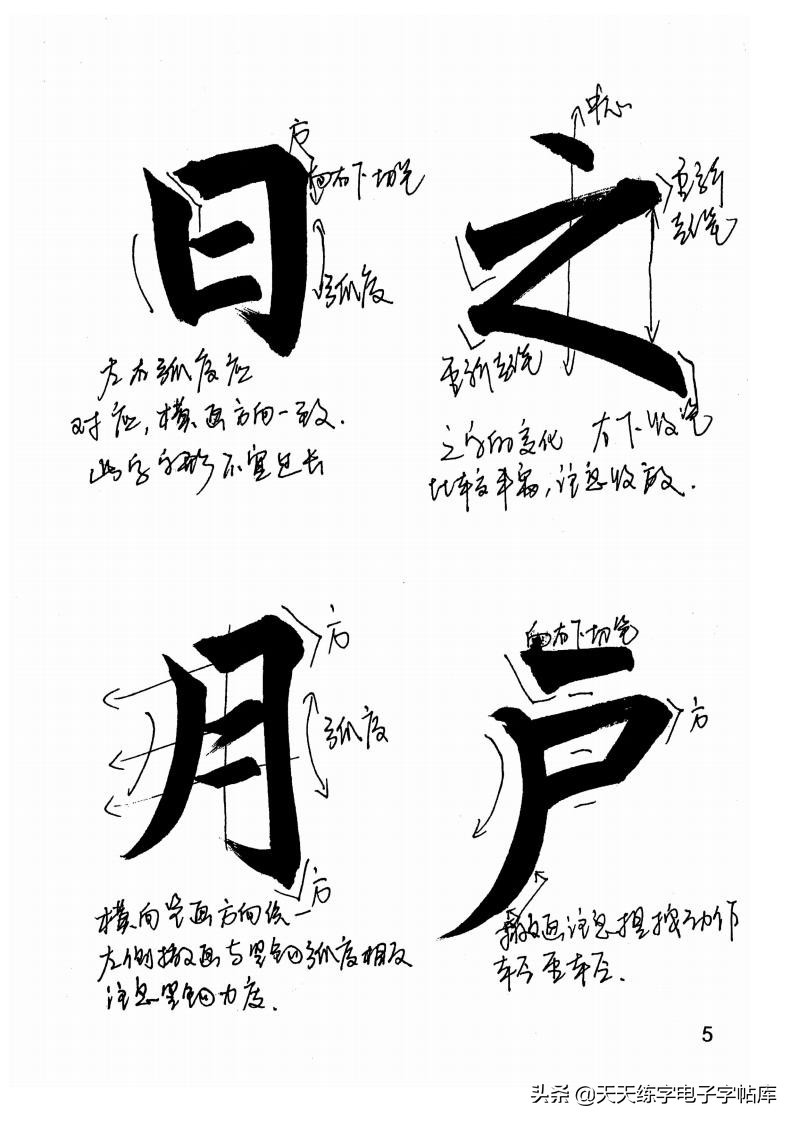 日
方
向右下切笔
弧度
左右弧度应
对应，横画方向一致.
此字字形不宜过长
之
中心
重新
起笔
重新起笔
右下收笔
之字的变化
比较丰富，注意收放.
月
方
弧度
方
横向笔画方向统一
左侧撇画与竖钩弧度相反
注意竖钩力度.
户
向右下切笔
方
撇画注意提按动作
轻重轻.
5
头条 @天天练字电子字帖库